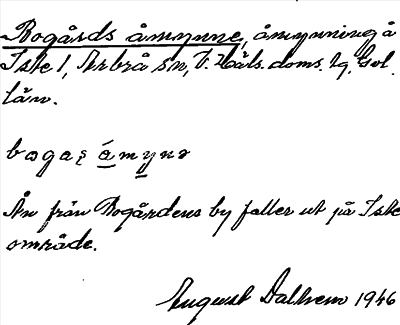 Bogårds åmynne, åmynning å
Iste 1, Arbrå sn, V. Häls. doms. lg, Gvl.
län.
bogaʂ åmynə
Ån från Bogårdens by faller ut på Iste
område.
August Dalhem 1946